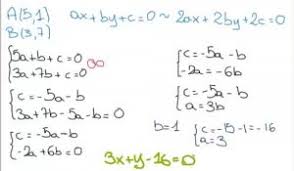 A(5,1) ax+by+c=0 ~ 2ax+2by+2c=0
B(3,7)
{5a+b+c=0
{3a+7b+c=0 ∞
{c=-5a-b
{3a+7b-5a-b=0
{c=-5a-b
{-2a+6b=0
{c=-5a-b
{-2a=-6b
{c=-5a-b
{a=3b
b=1 {c=-15-1=-16
{a=3
3x+y-16=0